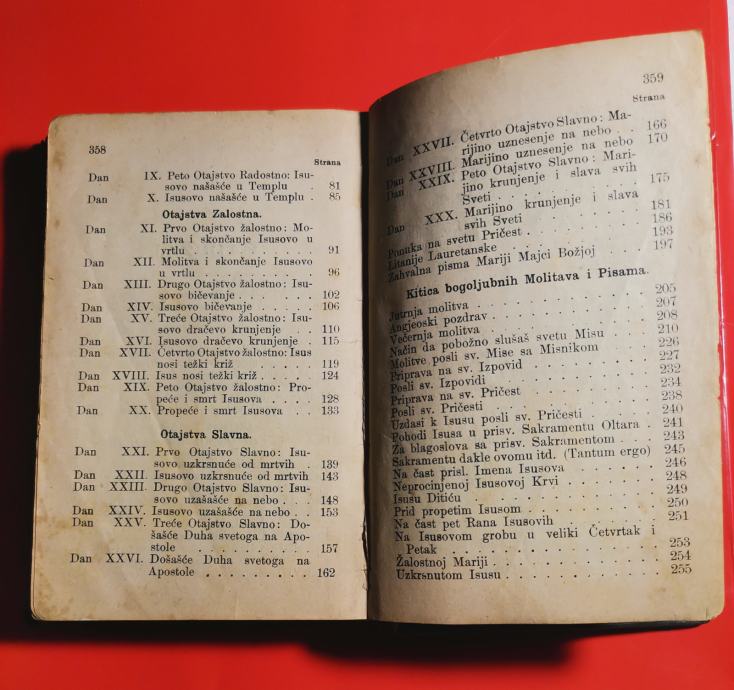 358
Strana
Dan IX. Peto Otajstvo Radostno: Isu-
sovo našašće u Templu . 81
Dan X. Isusovo našašće u Templu . 85
Otajstva Žalostna.
Dan XI. Prvo Otajstvo žalostno: Mo-
litva i skončanje Isusovo u
vrtlu . . . . . . . . . 91
Dan XII. Molitva i skončanje Isusovo
u vrtlu . . . . . . . . 96
Dan XIII. Drugo Otajstvo žalostno: Isu-
sovo bičevanje . . . . . 102
Dan XIV. Isusovo bičevanje . . . . 106
Dan XV. Treće Otajstvo žalostno: Isu-
sovo dračevo krunjenje . 110
Dan XVI. Isusovo dračevo krunjenje . 115
Dan XVII. Četvrto Otajstvo žalostno: Isus
nosi težki križ . . . . . 119
Dan XVIII. Isus nosi težki križ . . . . 124
Dan XIX. Peto Otajstvo žalostno: Pro-
peće i smrt Isusova . . . 128
Dan XX. Propeće i smrt Isusova . . 133
Otajstva Slavna.
Dan XXI. Prvo Otajstvo Slavno: Isu-
sovo uzkrsnuće od mrtvih . 139
Dan XXII. Isusovo uzkrsnuće od mrtvih 143
Dan XXIII. Drugo Otajstvo Slavno: Isu-
sovo uzašašće na nebo . . 148
Dan XXIV. Isusovo uzašašće na nebo . 153
Dan XXV. Treće Otajstvo Slavno: Do-
šašće Duha svetoga na Apo-
stole . . . . . . . . 157
Dan XXVI. Došašće Duha svetoga na
Apostole . . . . . . . . 162
359
Strana
Dan XXVII. Četvrto Otajstvo Slavno: Ma-
rijino uznesenje na nebo . . 166
Dan XXVIII. Marijino uznesenje na nebo 170
Dan XXIX. Peto Otajstvo Slavno: Mari-
jino krunjenje i slava svih
Sveti . . . . . . . . 175
Dan XXX. Marijino krunjenje i slava
svih Sveti . . . . . . 181
Ponuka na svetu Pričest . . . . . . 186
Litanije Lauretanske . . . . . . . 193
Zahvalna pisma Mariji Majci Božjoj . . 197
Kitica bogoljubnih Molitava i Pisama.
Jutrnja molitva . . . . . . . . 205
Angjeoski pozdrav . . . . . . . 207
Večernja molitva . . . . . . . . 208
Način da pobožno slušaš svetu Misu . . 210
Molitve posli sv. Mise sa Misnikom . . 226
Priprava na sv. Izpovid . . . . . . 227
Posli sv. Izpovidi . . . . . . . . 232
Priprava na sv. Pričest . . . . . . 234
Posli sv. Pričesti . . . . . . . . 238
Uzdasi k Isusu posli sv. Pričesti . . . 240
Pohodi Isusa u prisv. Sakramentu Oltara . 241
Za blagoslova sa prisv. Sakramentom . . 243
Sakramentu dakle ovomu itd. (Tantum ergo) 245
Na čast prisl. Imena Isusova . . . . 246
Neprocinjenoj Isusovoj Krvi . . . . . 248
Isusu Ditiću . . . . . . . . . 249
Prid propetim Isusom . . . . . . . 250
Na čast pet Rana Isusovih . . . . . 251
Na Isusovom grobu u veliki Četvrtak i
Petak . . . . . . . . . . 253
Žalostnoj Mariji . . . . . . . . 254
Uzkrsnutom Isusu . . . . . . . . 255